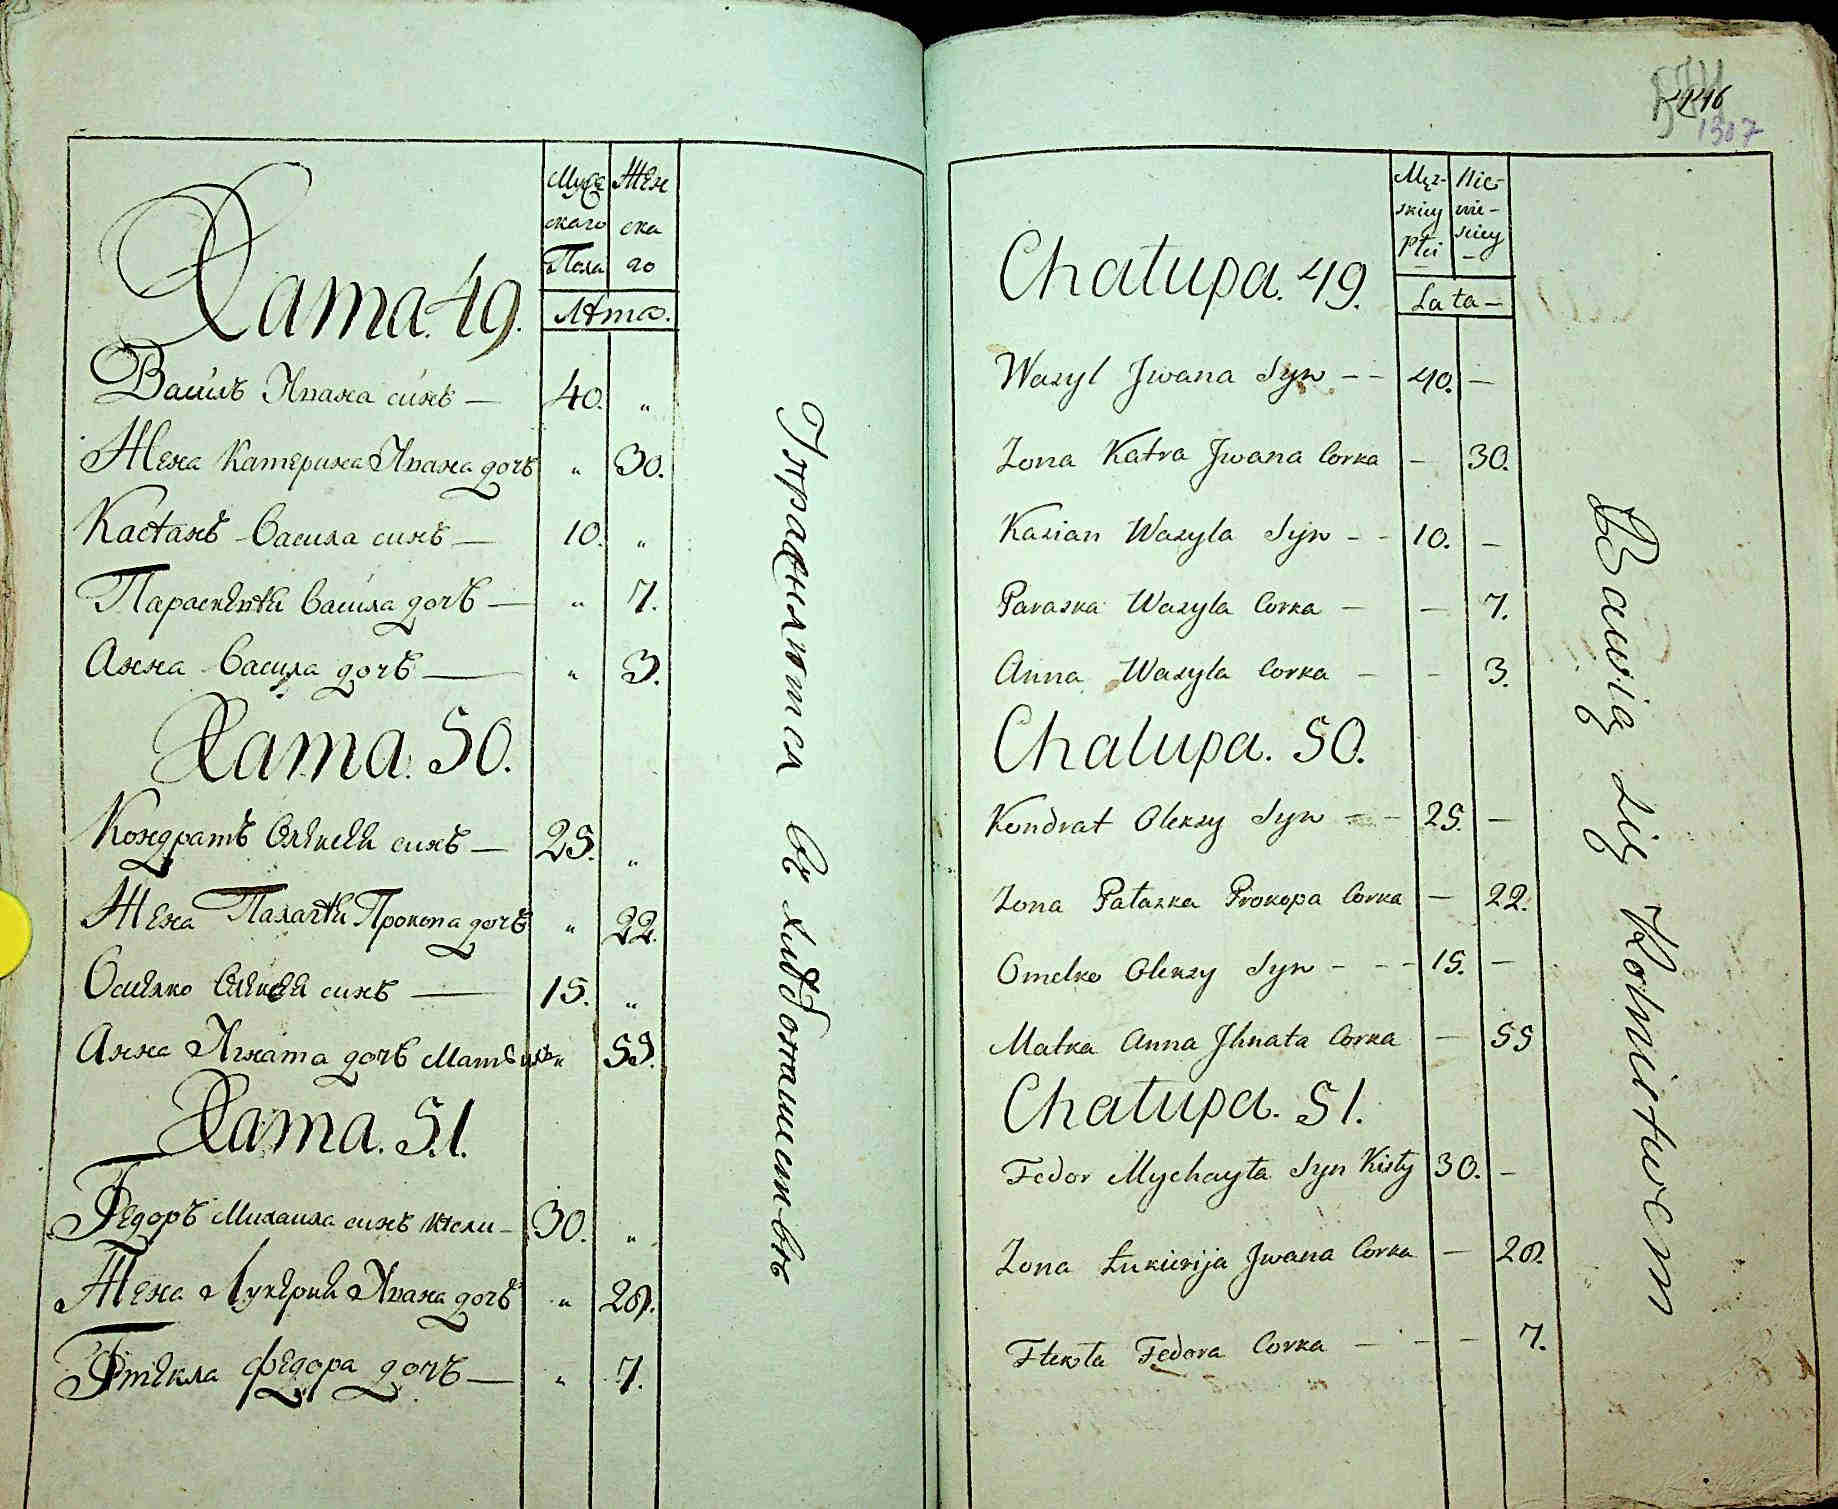 Мужескаго Пола
Женскаго
Лѣта.
Хата. 49.
Василъ Ивана синъ — 40. „
Жена Катерина Ивана дочъ „ 30.
Касіанъ Василя синъ — 10. „
Параскевія Василя дочъ — „ 7.
Анна Василя дочъ — „ 3.
Хата. 50.
Кондратъ Олексѣя синъ — 25. „
Жена Палагія Прокопа дочъ „ 22.
синъ — 15. „
Анна Игната дочъ „ 55.
Хата. 51.
Федоръ Михаила синъ — 30. „
Жена Лукерия Ивана дочъ „ 28.
Фтекла Федора дочъ — „ 7.
Упражняются въ хлѣбопашенствѣ
446
1307
Męz-skiey Płci
Nie-wie-sciey —
Lata —
Chałupa. 49.
Wasyl Jwana Syn — — 40. —
Zona Katra Jwana Corka — 30.
Kasian Wasyla Syn — — 10. —
Paraska Wasyla Corka — — 7.
Anna Wasyla Corka — — 3.
Chałupa. 50.
Kondrat Olexsy Syn — — 25. —
Zona Pałaska Prokopa Corka — 22.
Omelko Olexsy Syn — — — 15. —
Matka Anna Jhnata Corka — 55
Chałupa. 51.
Fedor Mychayła Syn Kisły 30. —
Zona Łukirija Jwana Corka — 28.
Ftekła Fedora Corka — — — 7.
Bawią się Rolnistwem